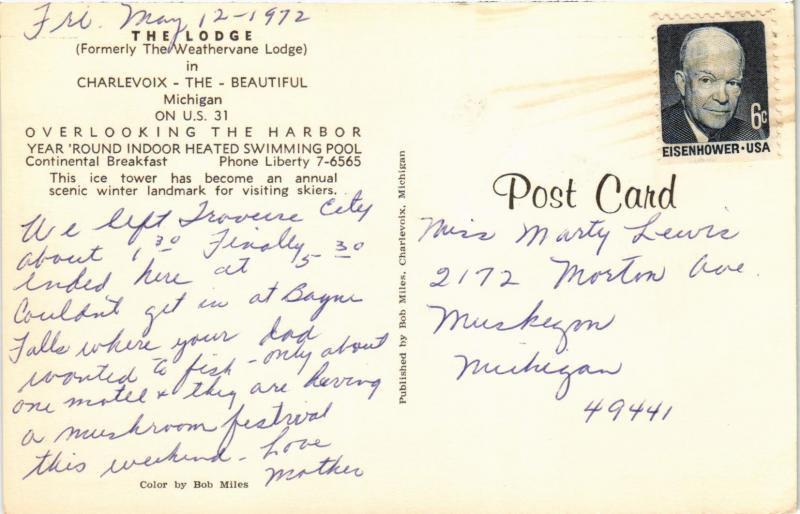 Fri. May 12-1972
THE LODGE
(Formerly The Weathervane Lodge)
in
CHARLEVOIX - THE - BEAUTIFUL
Michigan
ON U.S. 31
OVERLOOKING THE HARBOR
YEAR 'ROUND INDOOR HEATED SWIMMING POOL
Continental Breakfast Phone Liberty 7-6565
This ice tower has become an annual
scenic winter landmark for visiting skiers.
We left Traverse City
about 1 30 Finally
ended here at 5 30
Couldn't get in at Boyne
Falls where your dad
wanted to fish - only about
one motel & they are having
a mushroom festival
this weekend - Love
Mother
Color by Bob Miles
Published by Bob Miles, Charlevoix, Michigan
6c
EISENHOWER·USA
Post Card
Miss Marty Lewis
2172 Morton Ave.
Muskegon
Michigan
49441